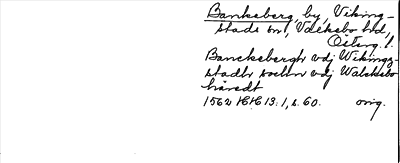 Banksberg, by, Viking-
stads sn, Valkebo hd,
Österg. l.
Banckebergh vdj Wikingz-
stadh sochn vdj Walkebo
häredt
1562 HH 13:1, s. 60. orig.